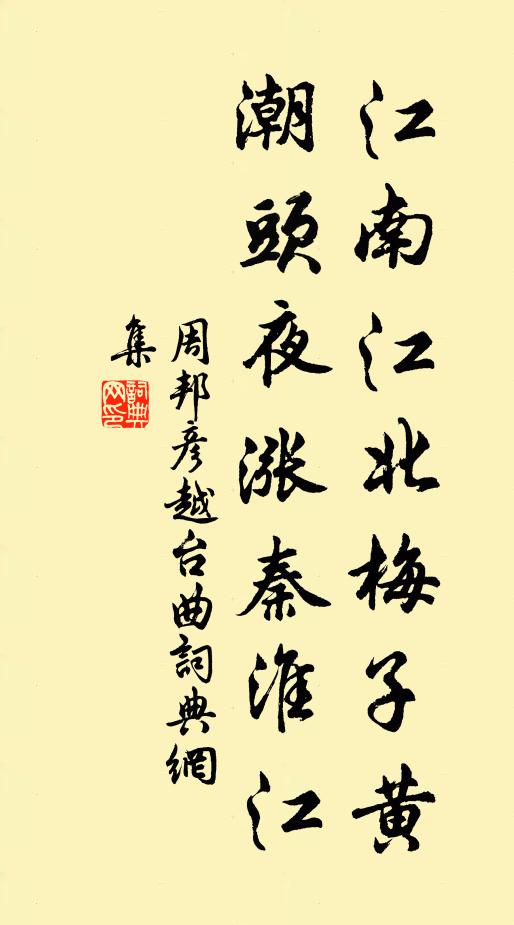 江南江北梅子黄
潮頭夜漲秦淮江
周邦彦越台曲詞典網
集
詞典
网印